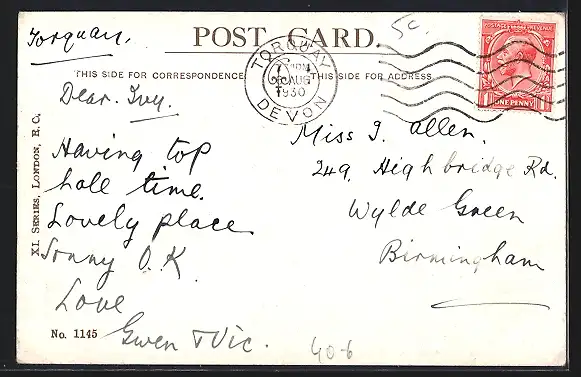 Torquay.
POST CARD.
5c.
THIS SIDE FOR CORRESPONDENCE
THIS SIDE FOR ADDRESS
TORQUAY
AUG
1930
DEVON
ONE PENNY
Dear. Ivy.
Having top
hole time.
Lovely place
Sonny O.K
Love
Gwen & Vic.
Miss I. Allen.
249, Highbridge Rd.
Wylde Green
Birmingham
XL SERIES, LONDON, E.C.
No. 1145
40-6